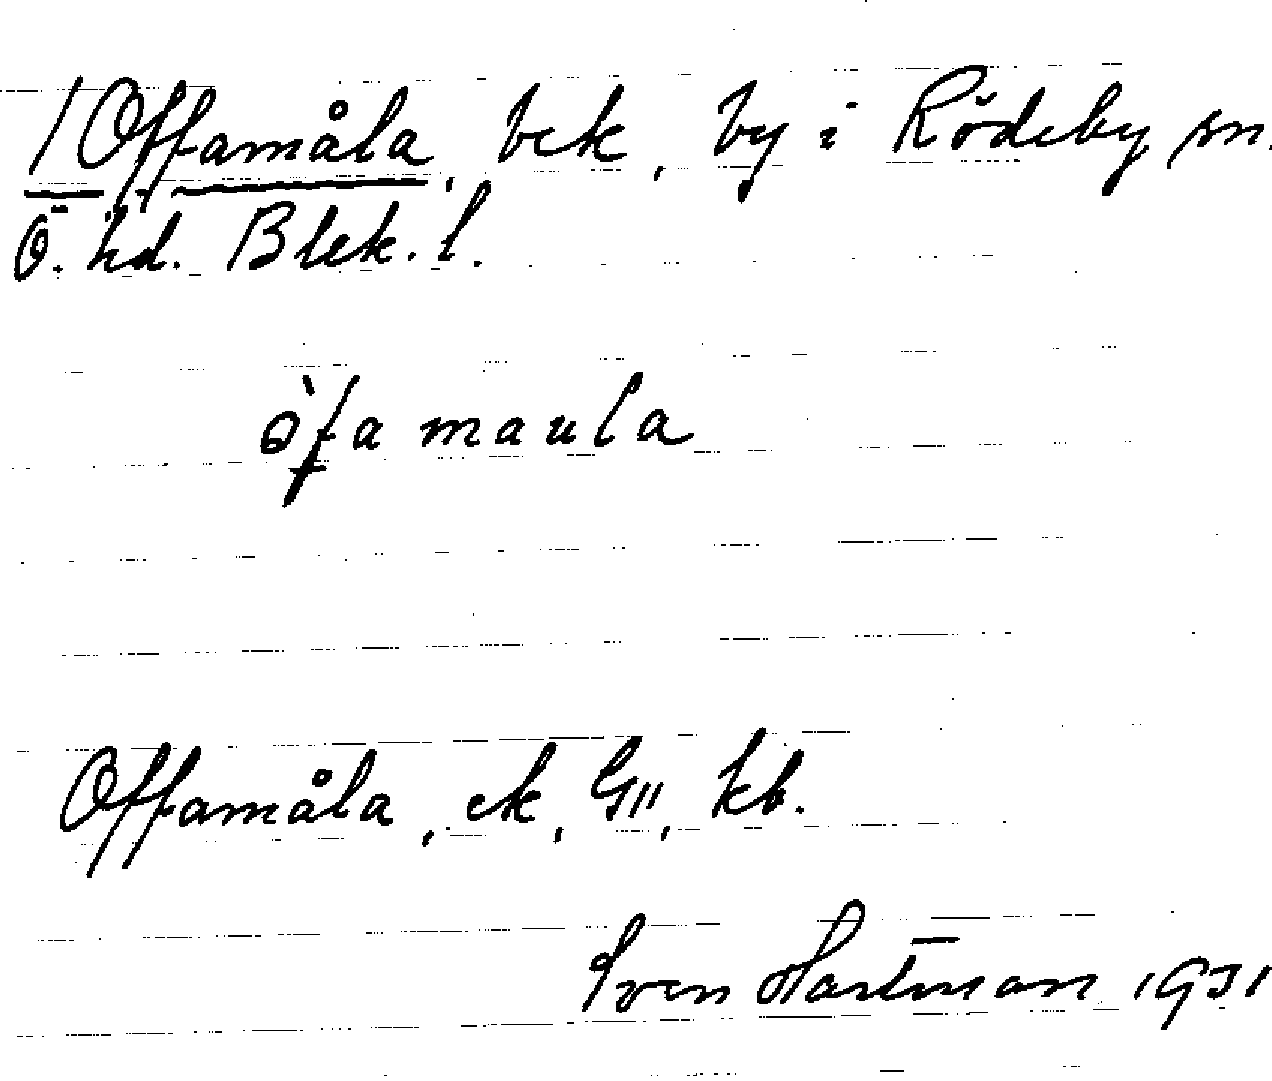 /Offamåla, bek, by i Rödeby sn.
Ö. hd. Blek. l.
òfamaula
Offamåla, ek, GII, kb.
Sven Hartman 1931